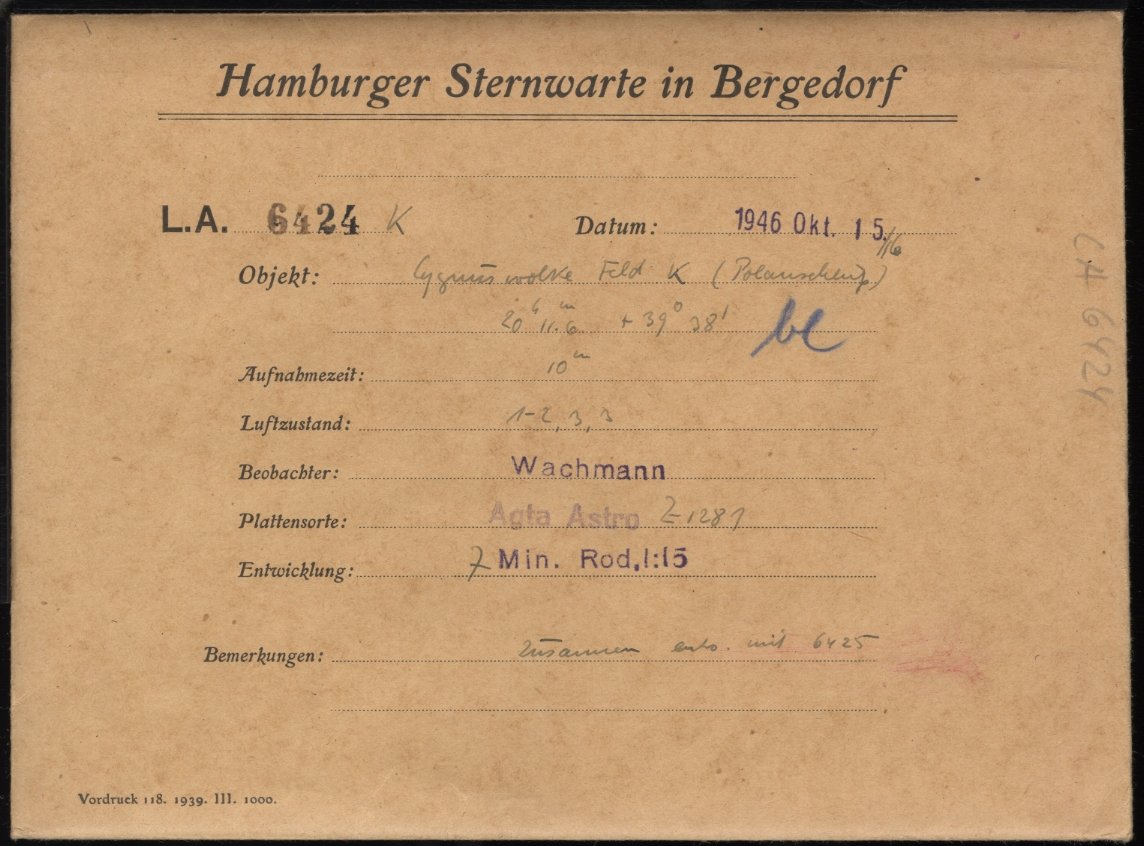 Hamburger Sternwarte in Bergedorf
L.A. 6424 K Datum: 1946 Okt. 15./16
Objekt: Cygnuswolke Feld K (Polarisschleife)
20h 11.m6 + 39° 38'
bl
Aufnahmezeit: 10m
Luftzustand: 1-2, 3, 3
Beobachter: Wachmann
Plattensorte: Agfa Astro Z-1281
Entwicklung: 7 Min. Rod. 1:15
Bemerkungen: zusammen entw. mit 6425
Vordruck 118. 1939. III. 1000.
LA 6424